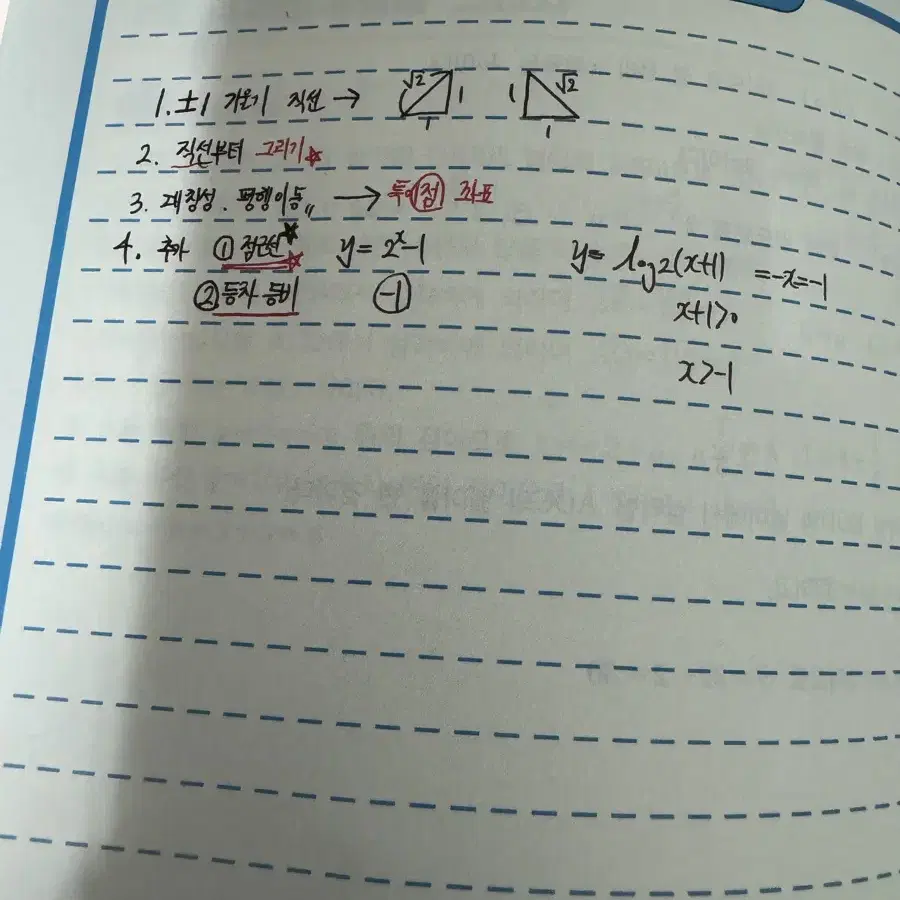 1. ±1 기울기 직선 → √2 1 1 1 √2 1
2. 직선부터 그리기☆
3. 대칭성. 평행이동 → 점 좌표
4. 추가 ① 점근선 ★☆ y = 2^x-1 y = log2(x+1) =-x=-1
② 등차 등비 -1 x+1>0
x>-1